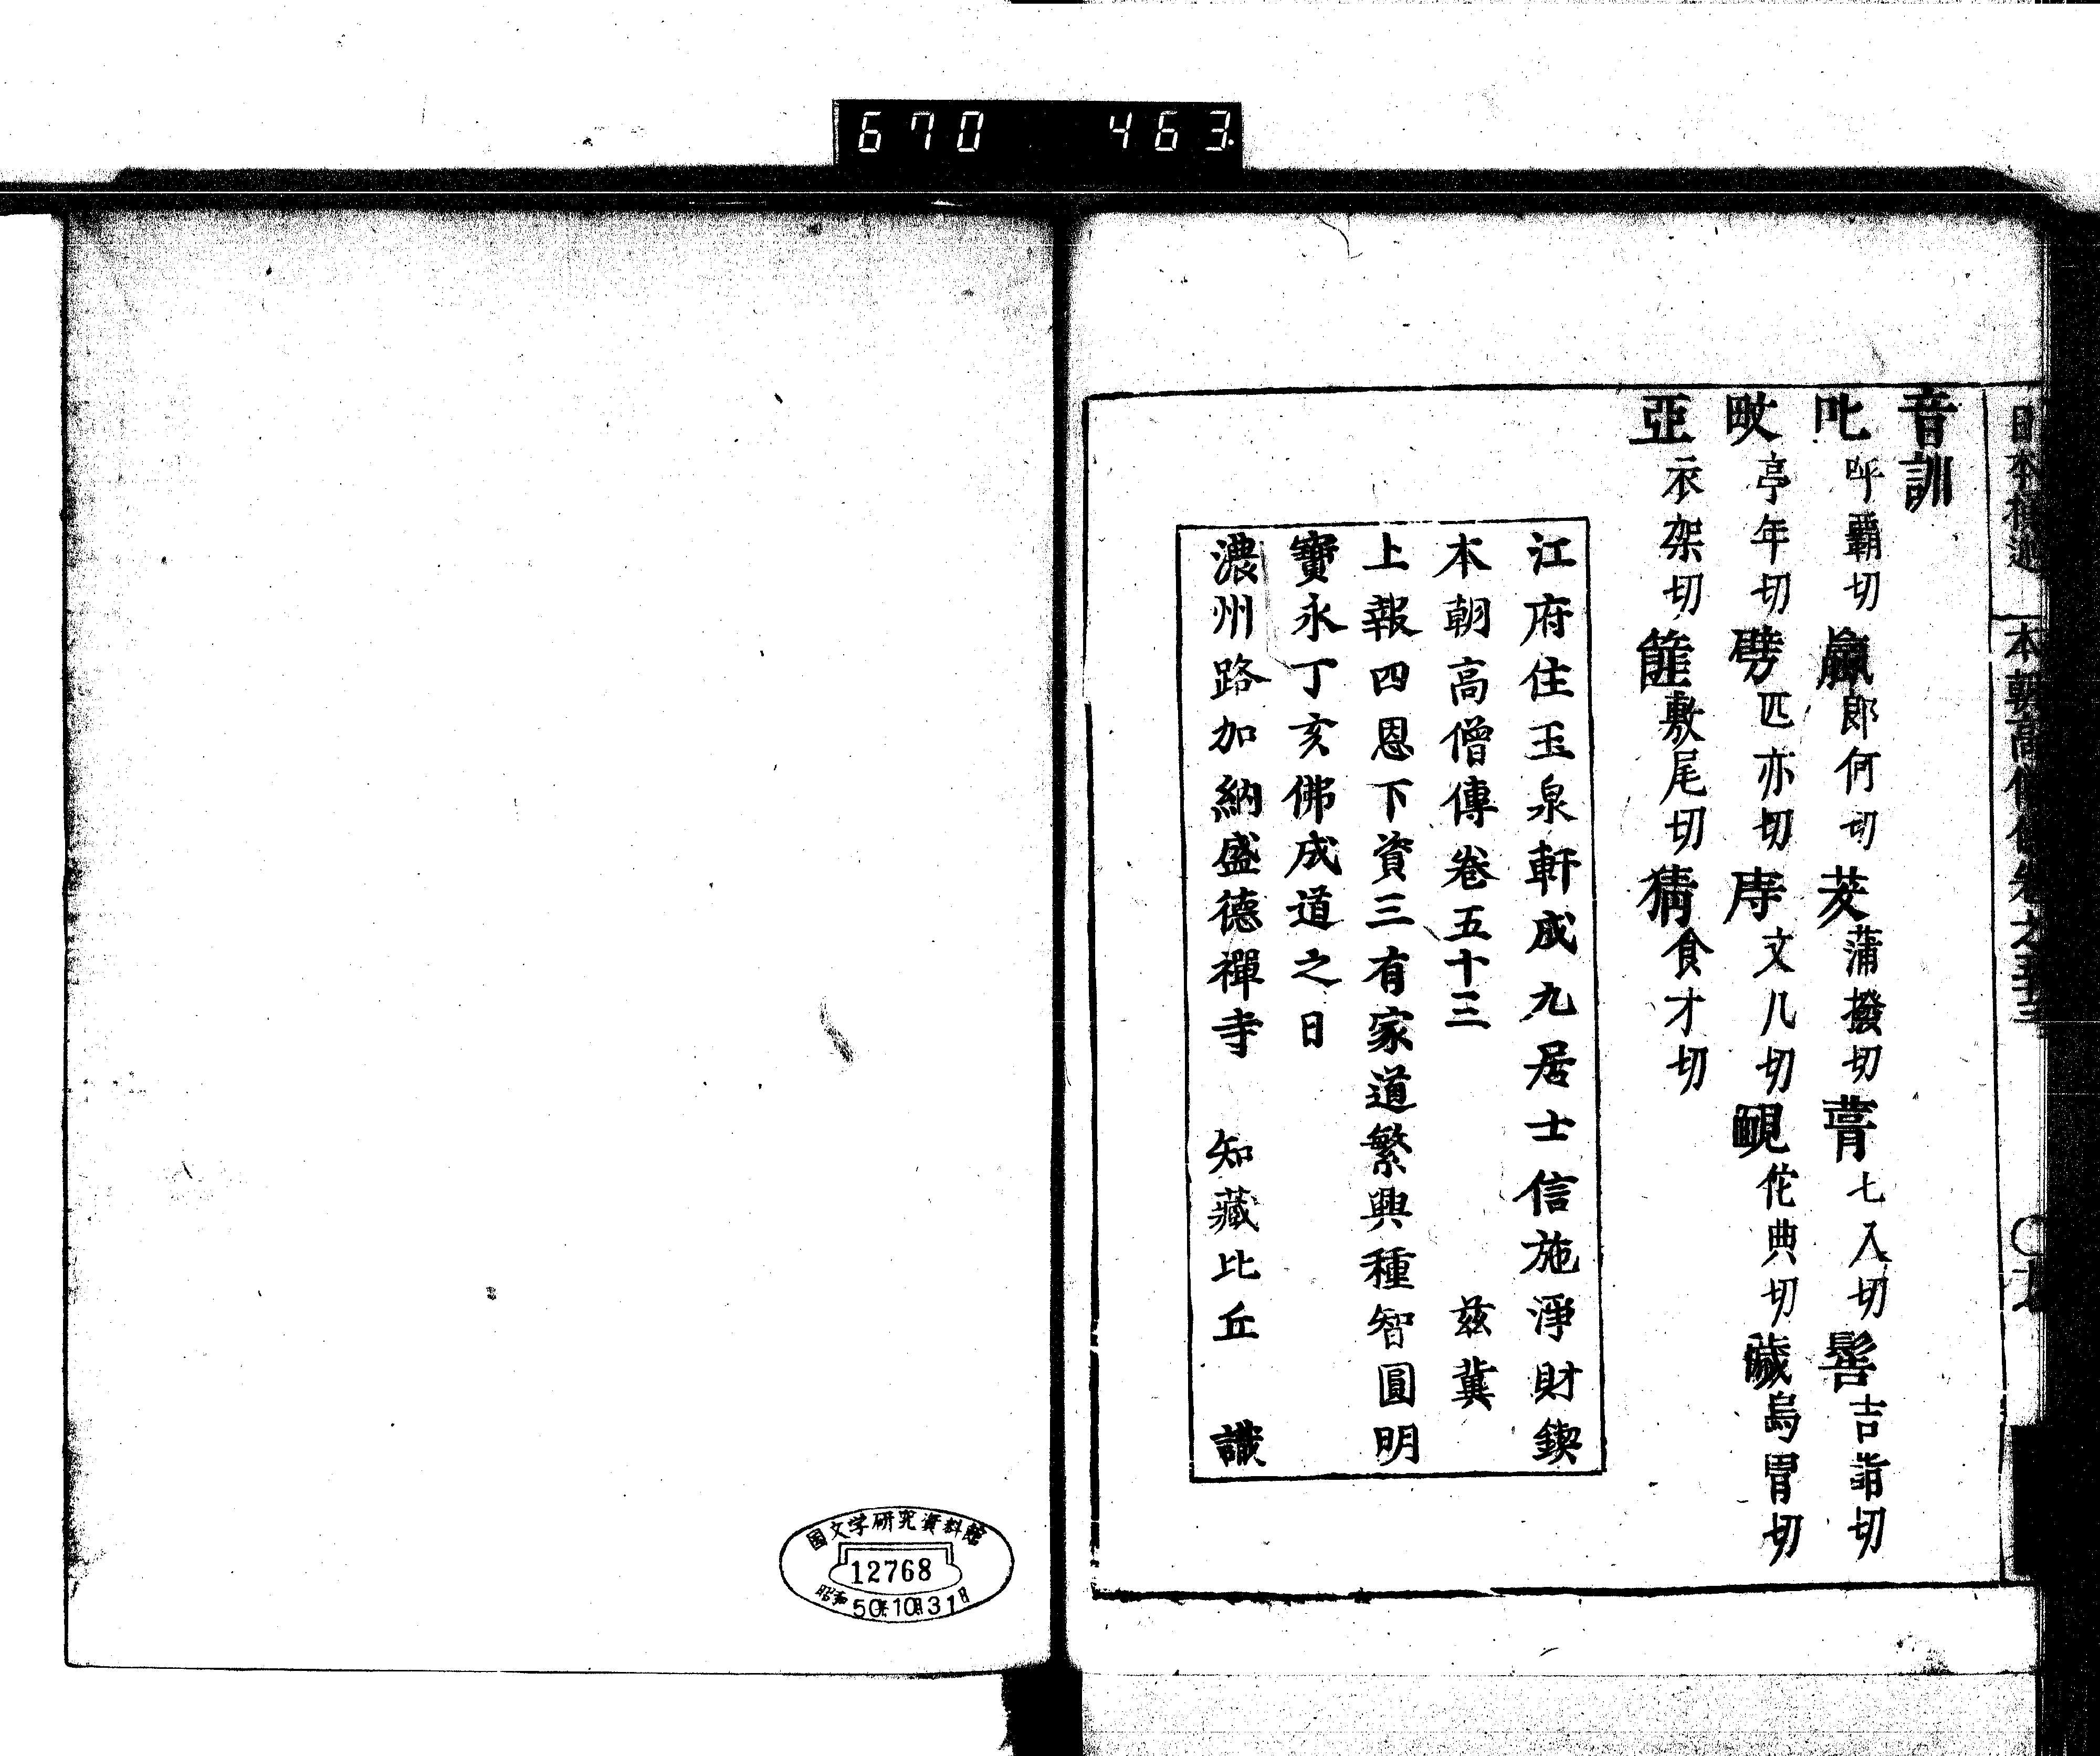 670 463
音訓
吪呼霸切臝郎何切茇蒲撥切葺七入切髻吉詣切
畋亭年切劈匹亦切庤丈几切靦佗典切薉烏胃切
亞衣架切篚敷尾切猜倉才切
江府住玉泉軒成九居士信施淨財鍥
本朝高僧傳卷五十三 茲冀
上報四恩下資三有家道繁興種智圓明
寶永丁亥佛成道之日
濃州路加納盛德禪寺 知藏比丘 識
国文学研究資料館
12768
昭和50年10月31日